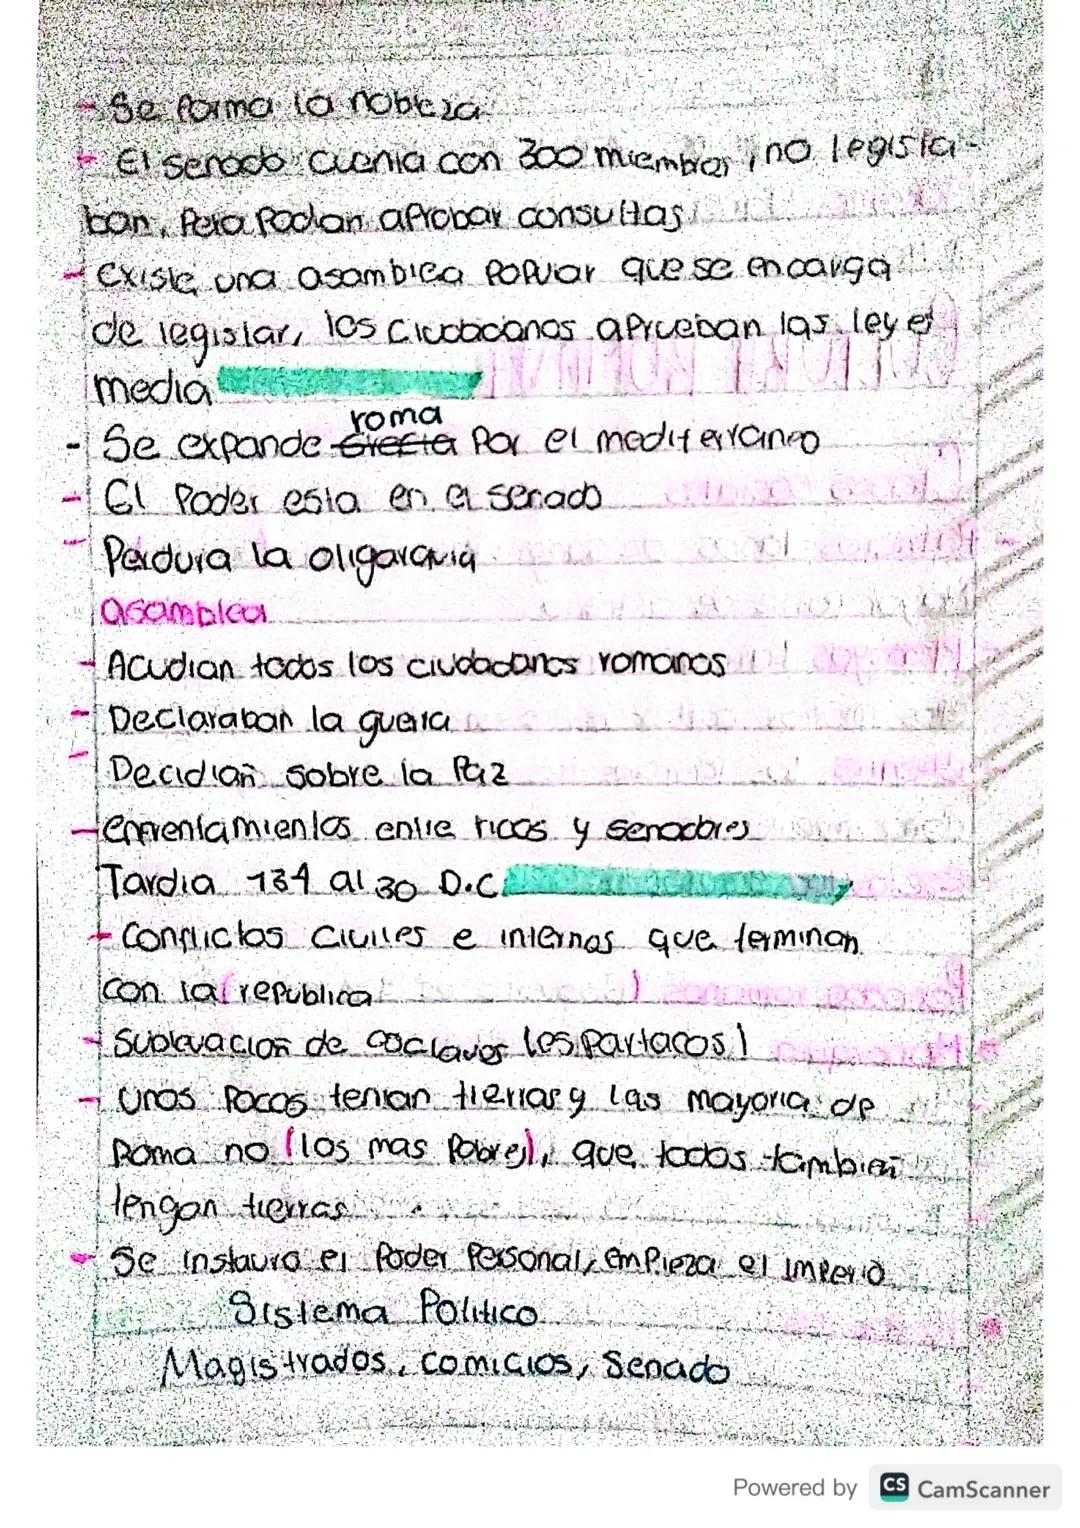 - Se forma la nobleza
- El senado cuenta con 300 miembros, no legisla-
ban, Pero Podian aprobar consultas
- Existe una asamblea Popular que se encarga
de legislar, los Ciudadanos aprueban las leyes
media
roma
- Se expande Grecia Por el mediterraneo
- El Poder esta en el senado
- Perdura la oligarquia
asamblea
- Acudian todos los ciudadanos romanos
- Declaraban la guerra
- Decidian sobre la Paz
- enfrentamientos entre ricos y senadores
Tardia 134 al 30 D.C
- Conflictos civiles e internos que terminan
con la (republica )
- Sublevacion de esclavos (espartacos)
- unos Pocos tenian tierras y las mayoria de
Roma no (los mas Pobres), que todos tambien
tengan tierras
- Se instaura el Poder Personal, empieza el imperio
Sistema Politico
Magistrados, comicios, Senado
Powered by CS CamScanner